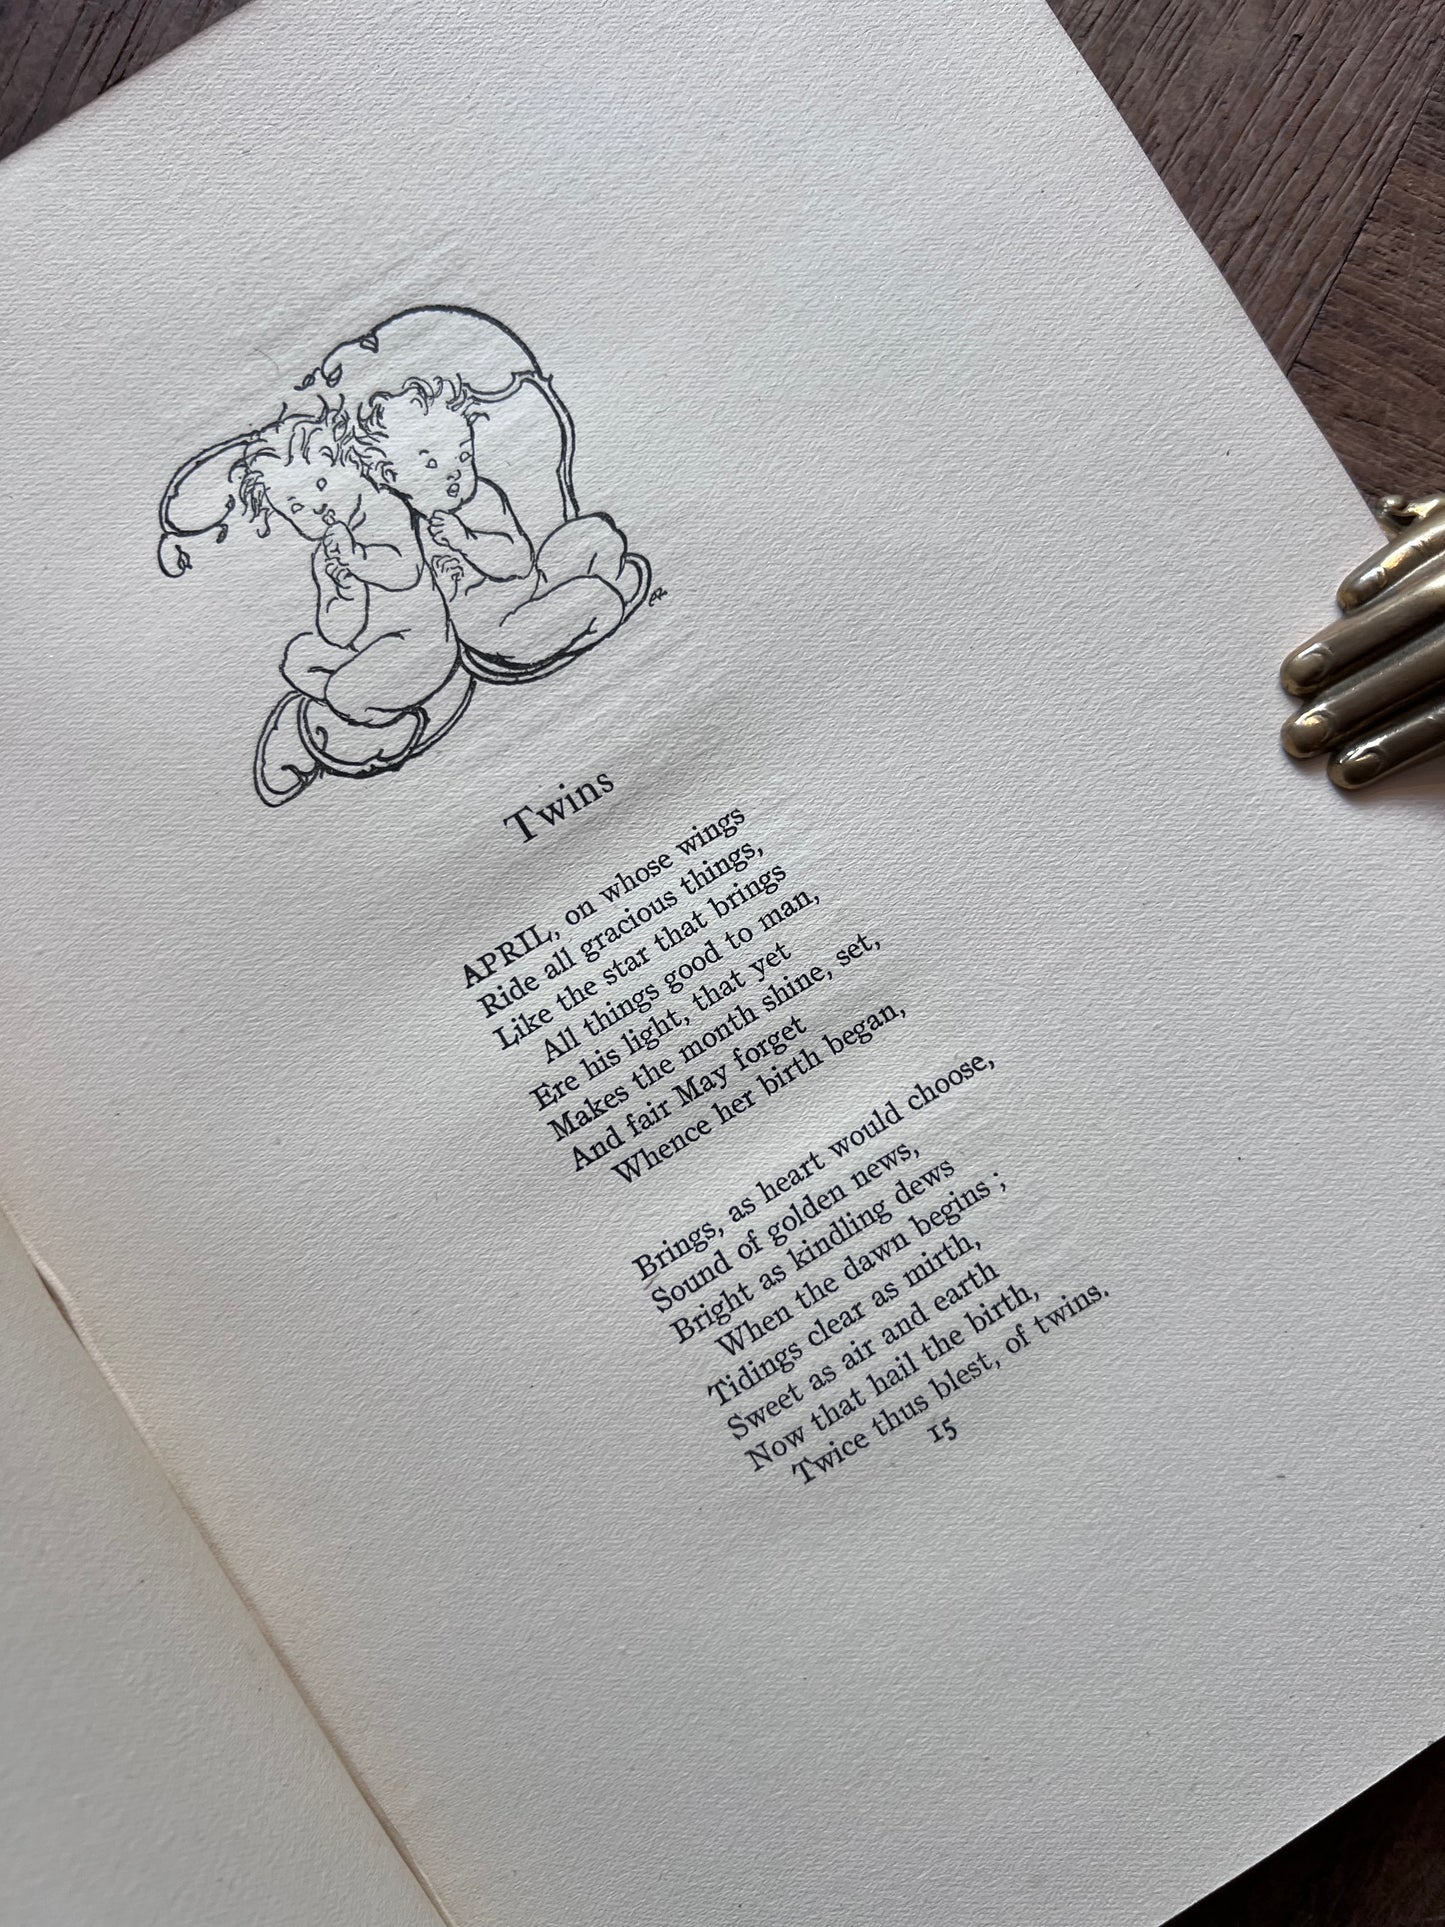 Twins
APRIL, on whose wings
Ride all gracious things,
Like the star that brings
All things good to man,
Ere his light, that yet
Makes the month shine, set,
And fair May forget
Whence her birth began,
Brings, as heart would choose,
Sound of golden news,
Bright as kindling dews
When the dawn begins ;
Tidings clear as mirth,
Sweet as air and earth
Now that hail the birth,
Twice thus blest, of twins.
15